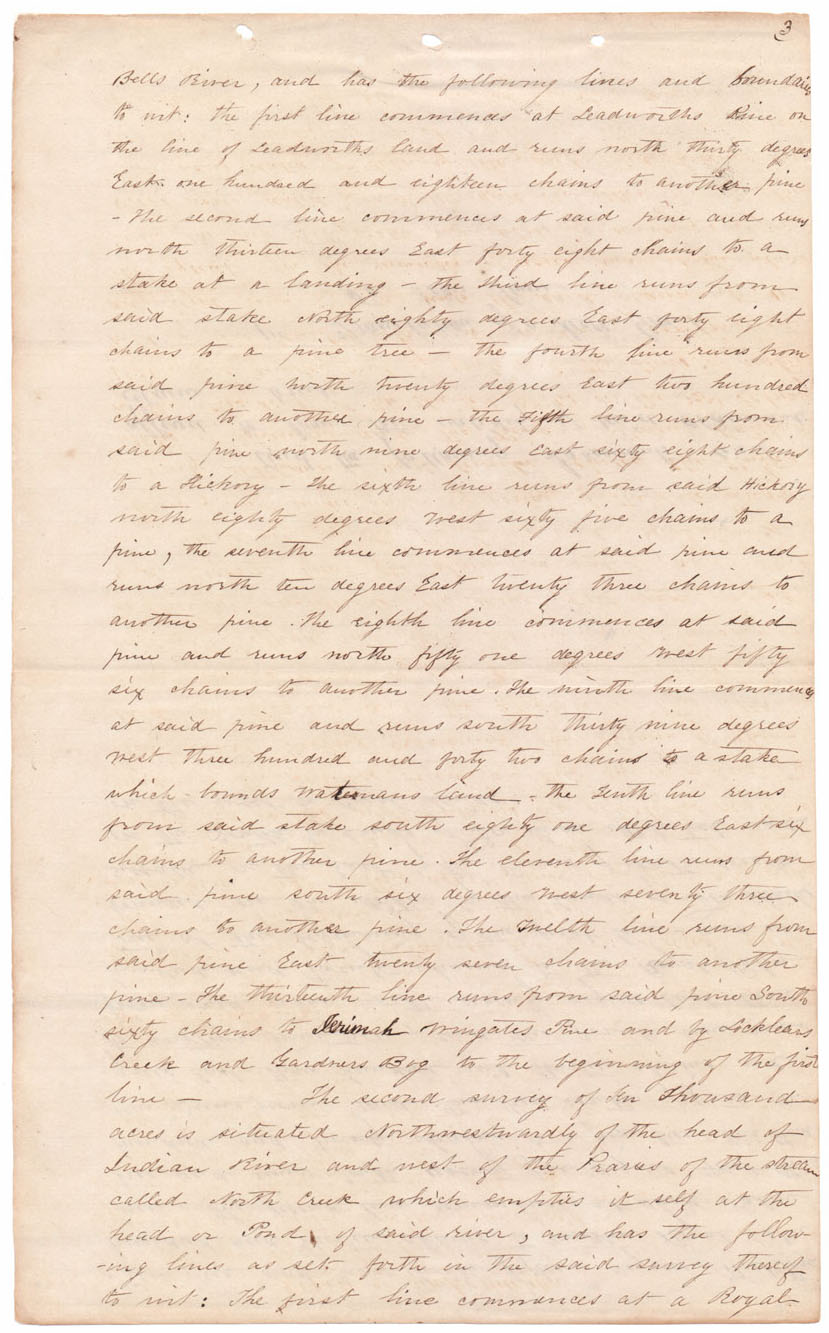 3
Bells River, and has the following lines and boundaries
to wit: the first line commences at Leadworths Pine on
the line of Leadworths land and runs north thirty degrees
East one hundred and eighteen chains to another pine
- The second line commences at said pine and runs
north thirteen degrees East forty eight chains to a
stake at a landing - the third line runs from
said stake North eighty degrees East forty eight
chains to a pine tree - the fourth line runs from
said pine north twenty degrees East two hundred
chains to another pine - the Fifth line runs from
said pine north nine degrees East sixty eight chains
to a Hickory - The sixth line runs from said Hickory
north eighty degrees West sixty five chains to a
pine, the seventh line commences at said pine and
runs north ten degrees East twenty three chains to
another pine. The eighth line commences at said
pine and runs north fifty one degrees West fifty
six chains to another pine. The ninth line commences
at said pine and runs south thirty nine degrees
West three hundred and forty two chains to a stake
which bounds Watermans land - the Tenth line runs
from said stake south eighty one degrees East six
chains to another pine. The eleventh line runs from
said pine south six degrees West seventy three
chains to another pine. The Twelth line runs from
said pine East twenty seven chains to another
pine - The thirteenth line runs from said pine South
sixty chains to Jerimah Wingates Pine and by Locklears
Creek and Gardners Bog to the beginning of the first
line - The second survey of Ten Thousand
acres is situated Northwestwardly of the head of
Indian River and west of the Praries of the stream
called North Creek which empties it self at the
head or Pond of said river, and has the follow-
-ing lines as set forth in the said survey thereof
to wit: The first line commences at a Royal